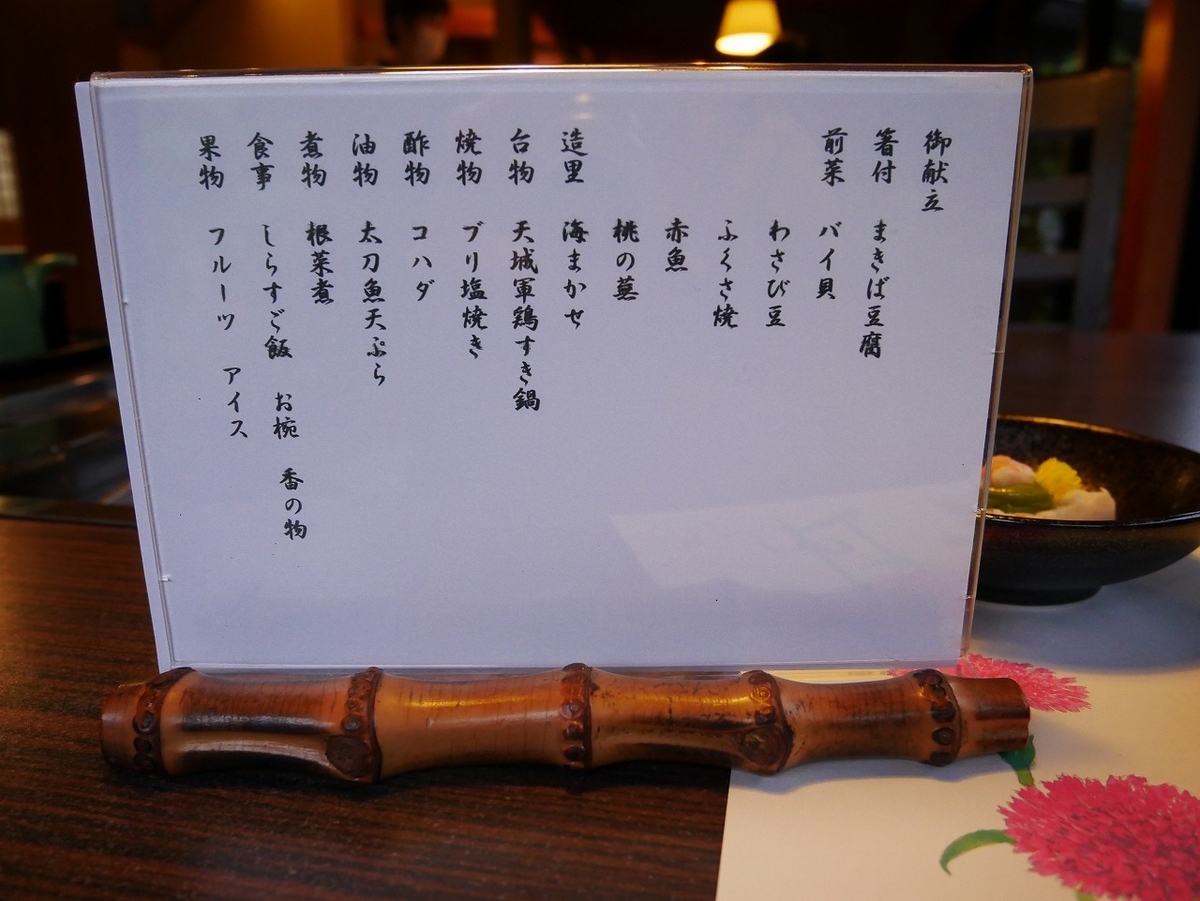 御献立
箸付 まきば豆腐
前菜 バイ貝
わさび豆
ふくさ焼
赤魚
桃の蕊
造里 海まかせ
台物 天城軍鶏すき鍋
焼物 ブリ塩焼き
酢物 コハダ
油物 太刀魚天ぷら
煮物 根菜煮
食事 しらすご飯 お椀 香の物
果物 フルーツ アイス